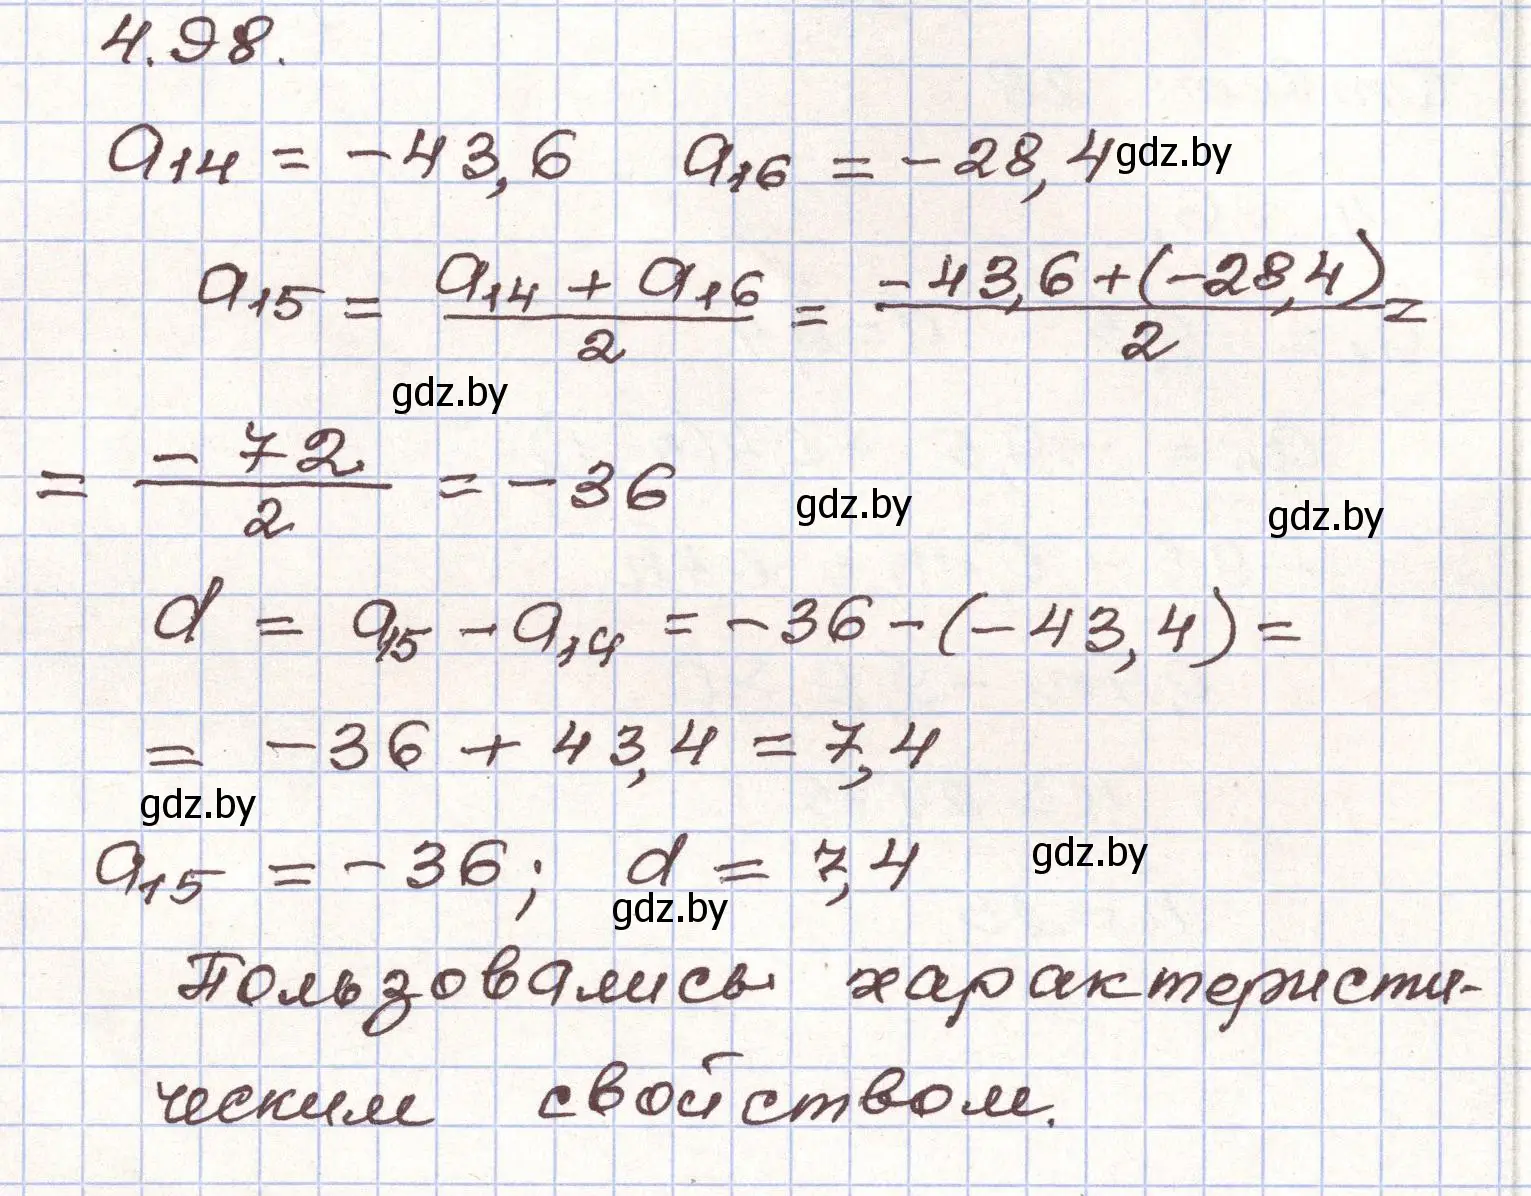 4.98.
a₁₄ = -43,6 a₁₆ = -28,4 gdz.by
a₁₅ = (a₁₄ + a₁₆)/2 = (-43,6 + (-28,4))/2 =
gdz.by
= -72/2 = -36 gdz.by gdz.by
d = a₁₅ - a₁₄ = -36 - (-43,4) =
= -36 + 43,4 = 7,4
gdz.by
a₁₅ = -36; d = 7,4 gdz.by
gdz.by
Пользовались характеристи-
ческим свойством.